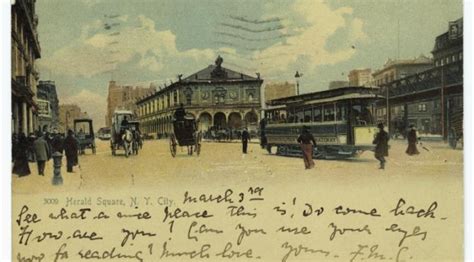 3009 Herald Square, N. Y. City. March 3rd
See what a nice place this is! Do come back.
How are you! Can you use your eyes
now for reading! Much love. Yours. F.M.C.